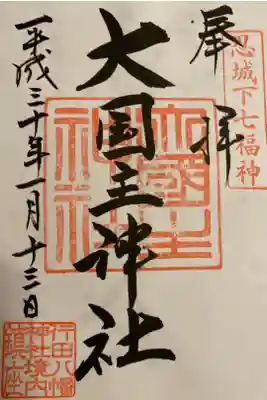 忍城下七福神
奉拝
大国主神社
平成三十年一月十三日
大國主
神社
行田八幡
神社境内
鎮座